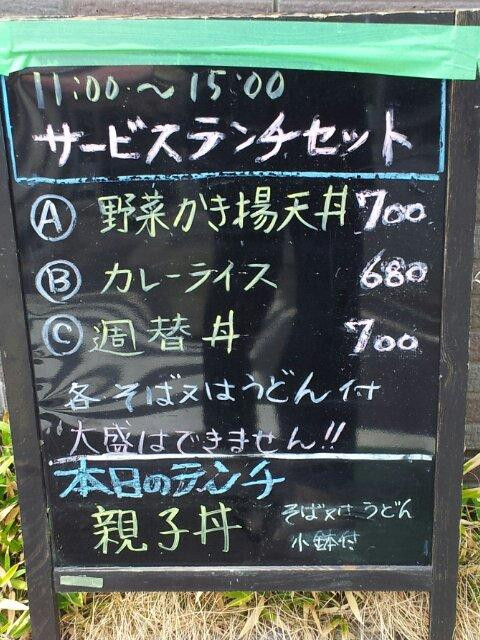 11:00～15:00
サービスランチセット
Ⓐ 野菜かき揚天丼 700
Ⓑ カレーライス 680
Ⓒ 週替丼 700
各そば又はうどん付
大盛はできません!!
本日のランチ
親子丼 そば又はうどん
小鉢付